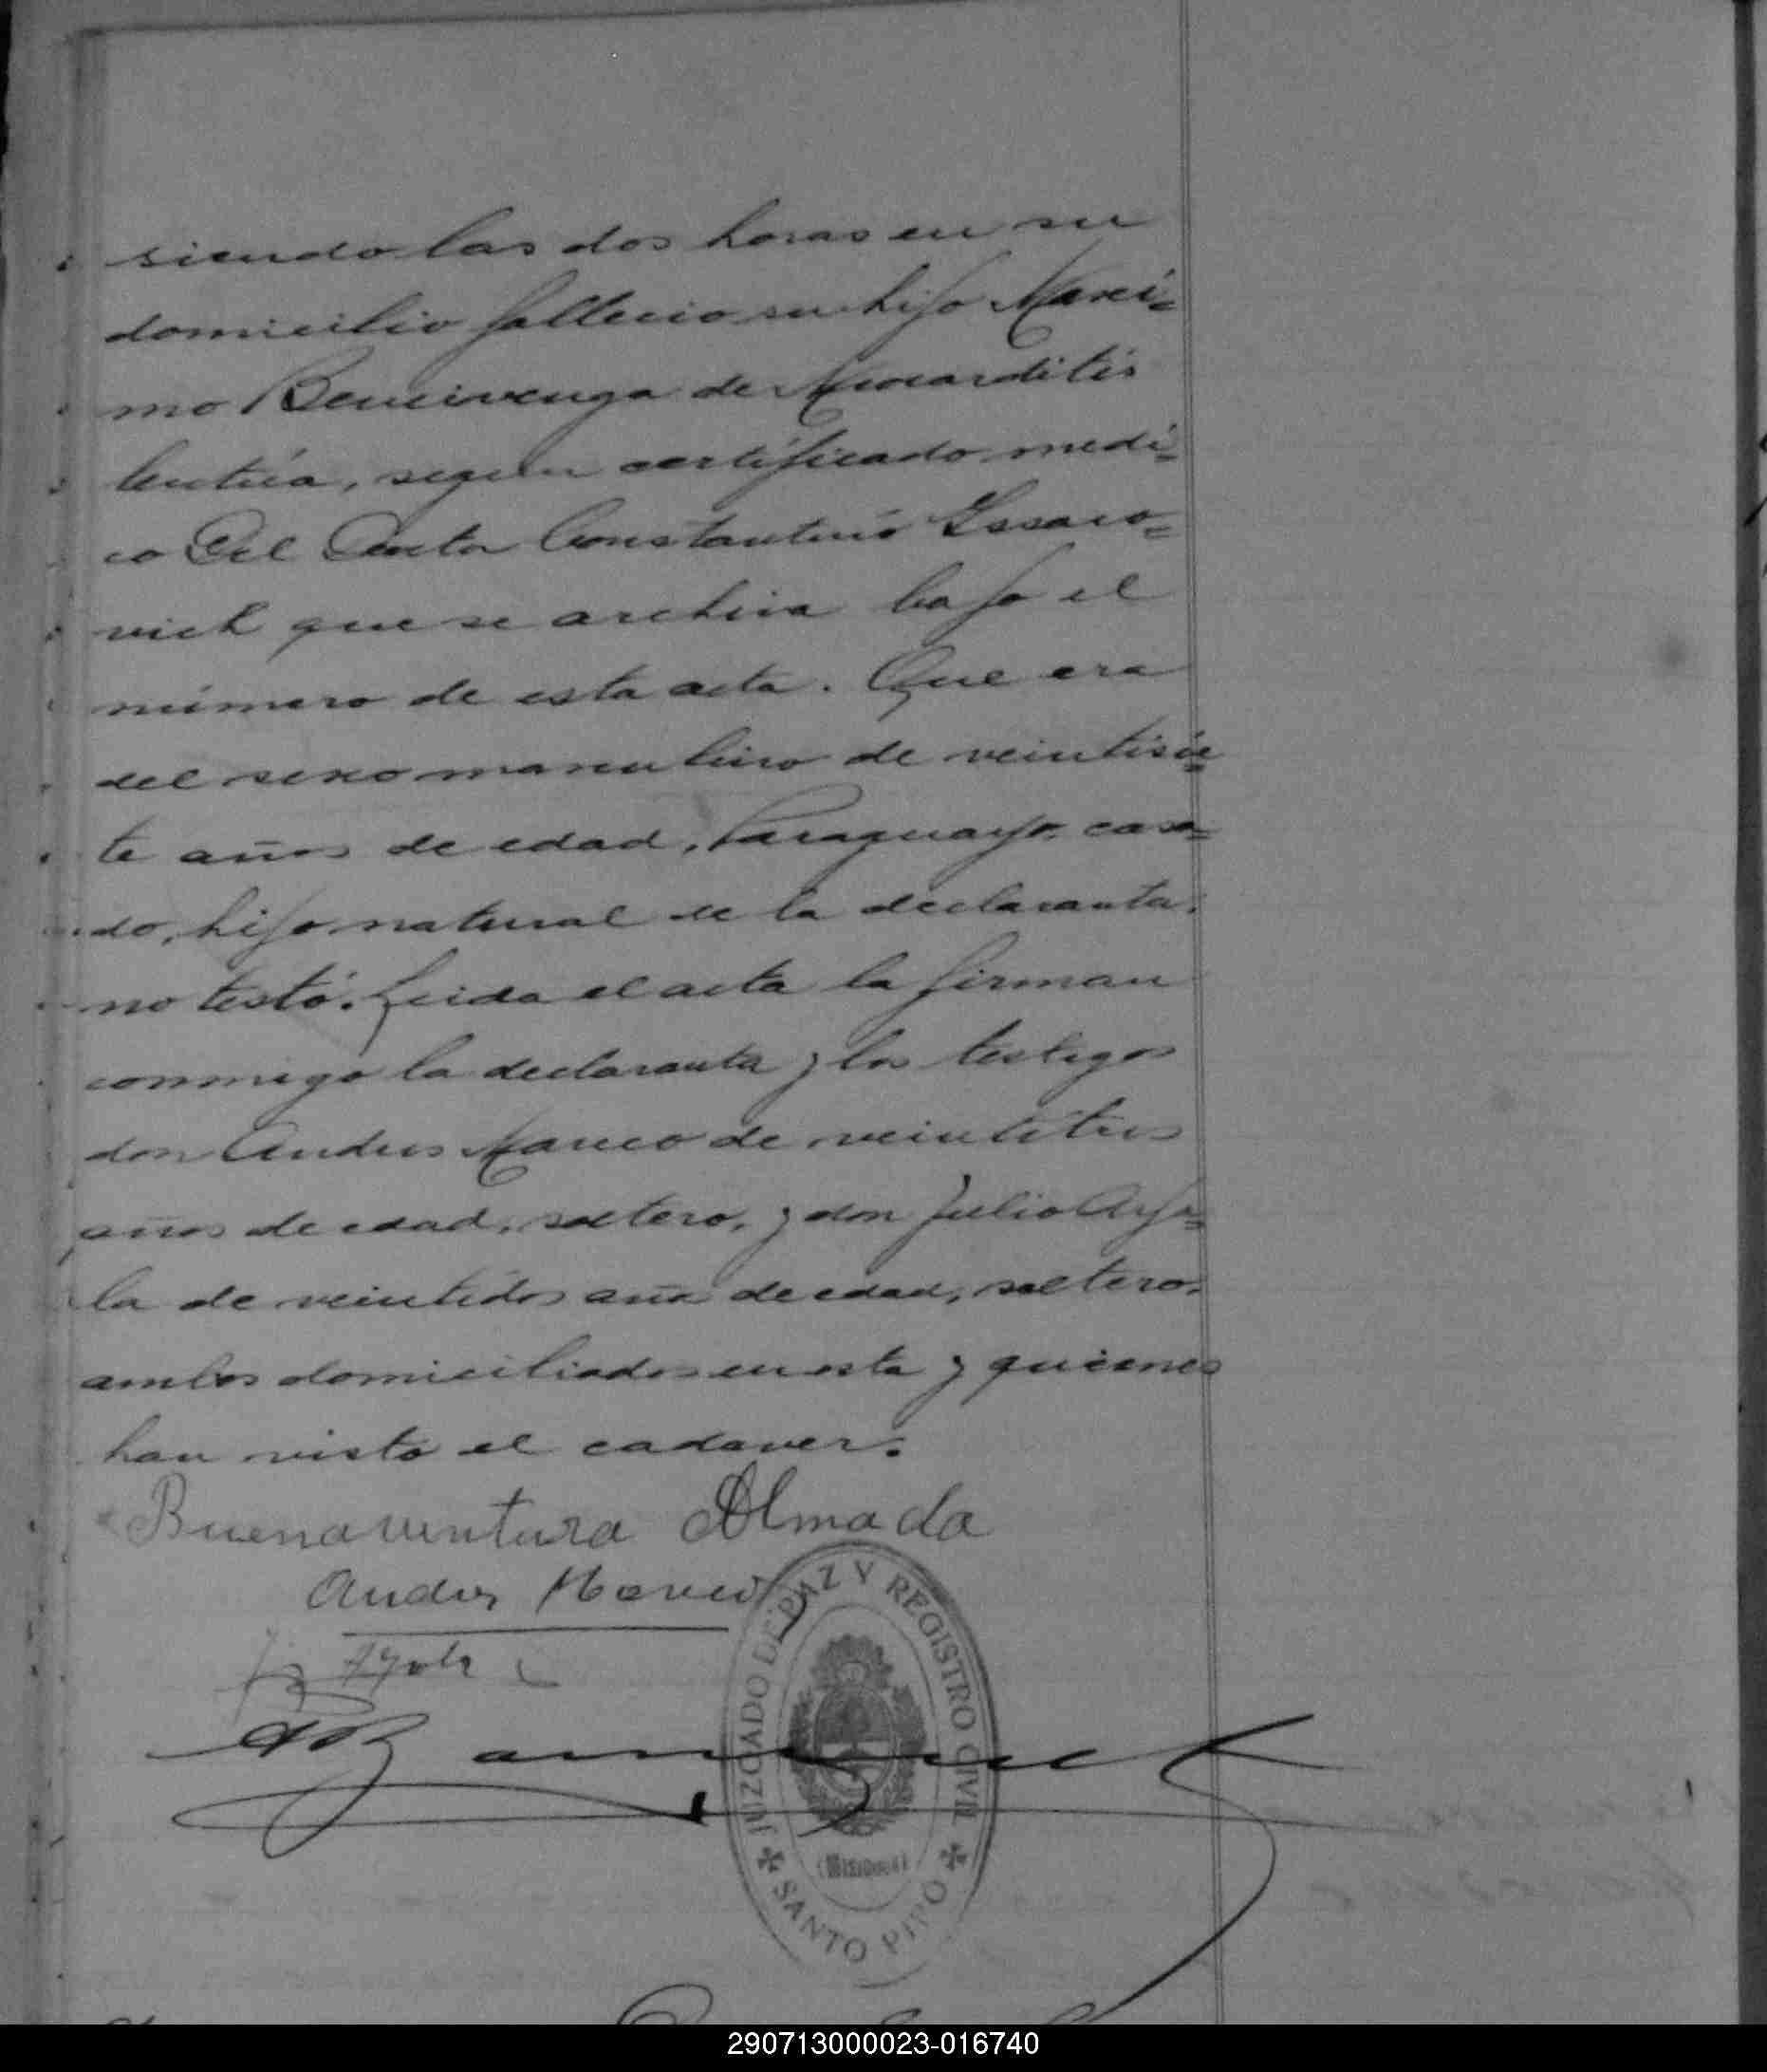 siendo las dos horas en su
domicilio fallecio su hijo Marci=
mo Bencivenga de Miocarditis
, segun certificado medi=
co del Doctor Constantino Issaco=
vich que se archiva bajo el
número de esta acta. Que era
del sexo masculino de veintisie=
te años de edad, Paraguayo, casa=
do, hijo natural de la declaranta.
no testó. Leida el acta la firman
conmigo la declaranta y los testigos
don Andres Mareco de veintitres
años de edad, soltero, y don Julio Aya=
la de veintidos años de edad, soltero,
ambos domiciliados en esta y quienes
han visto el cadaver.
Buenaventura Almada
Andres Mareco
J Ayala
JUZGADO DE PAZ Y REGISTRO CIVIL
(Misiones)
SANTO PIPO
290713000023-016740